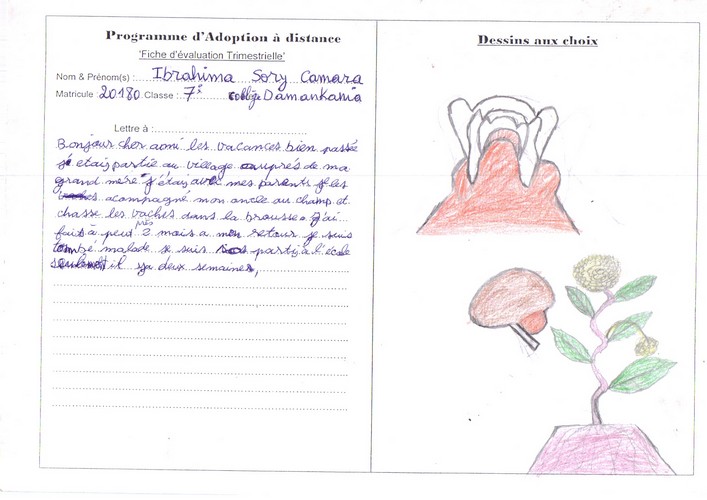 Programme d'Adoption à distance
'Fiche d'évaluation Trimestrielle'
Nom & Prénom(s) : Ibrahima Sory Camara
Matricule : 20180 Classe : 7è collège Damankania
Lettre à :
Bonjour cher ami les vacances bien passée
je etais partie au village auprés de ma
grand mère j'étais avec mes parents je les
acompagné mon oncle au champ et
chasse les vaches dans la brousse. J'ai
fait à peut près 2 mois a mon retour je suis
tombé malade je suis partir à l'école
seulement il ya deux semaines,
Dessins aux choix